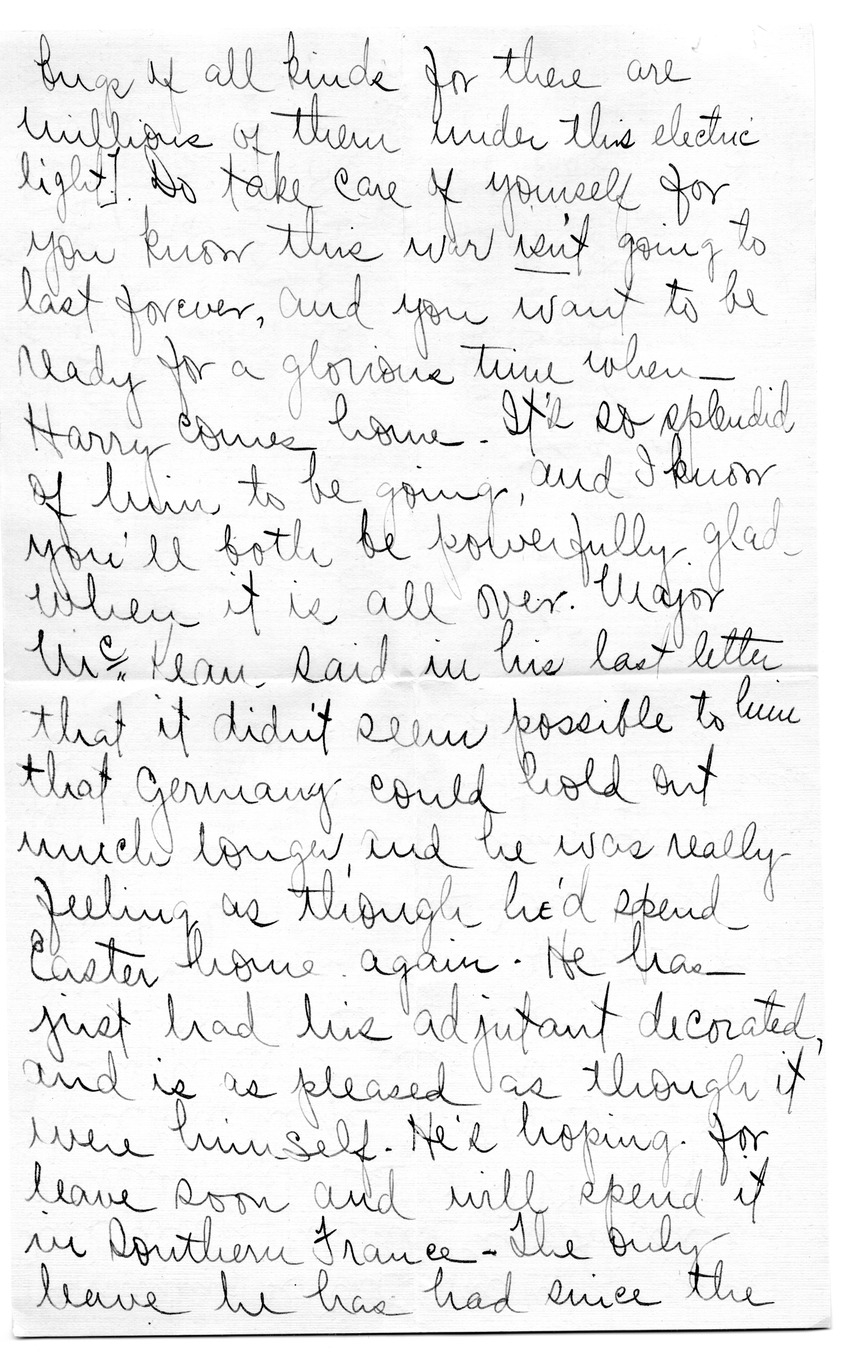 bugs of all kinds for there are
millions of them under this electric
light]. Do take care of yourself for
you know this war isn't going to
last forever, and you want to be
ready for a glorious time when
Harry comes home. It's so splendid
of him to be going, and I know
you'll both be powerfully glad
when it is all over. Major
McKean said in his last letter
that it didn't seem possible to him
that Germany could hold out
much longer, and he was really
feeling as though he'd spend
Easter home again. He has
just had his adjutant decorated,
and is as pleased as though it
were himself. He's hoping for
leave soon and will spend it
in Southern France - The only
leave he has had since the